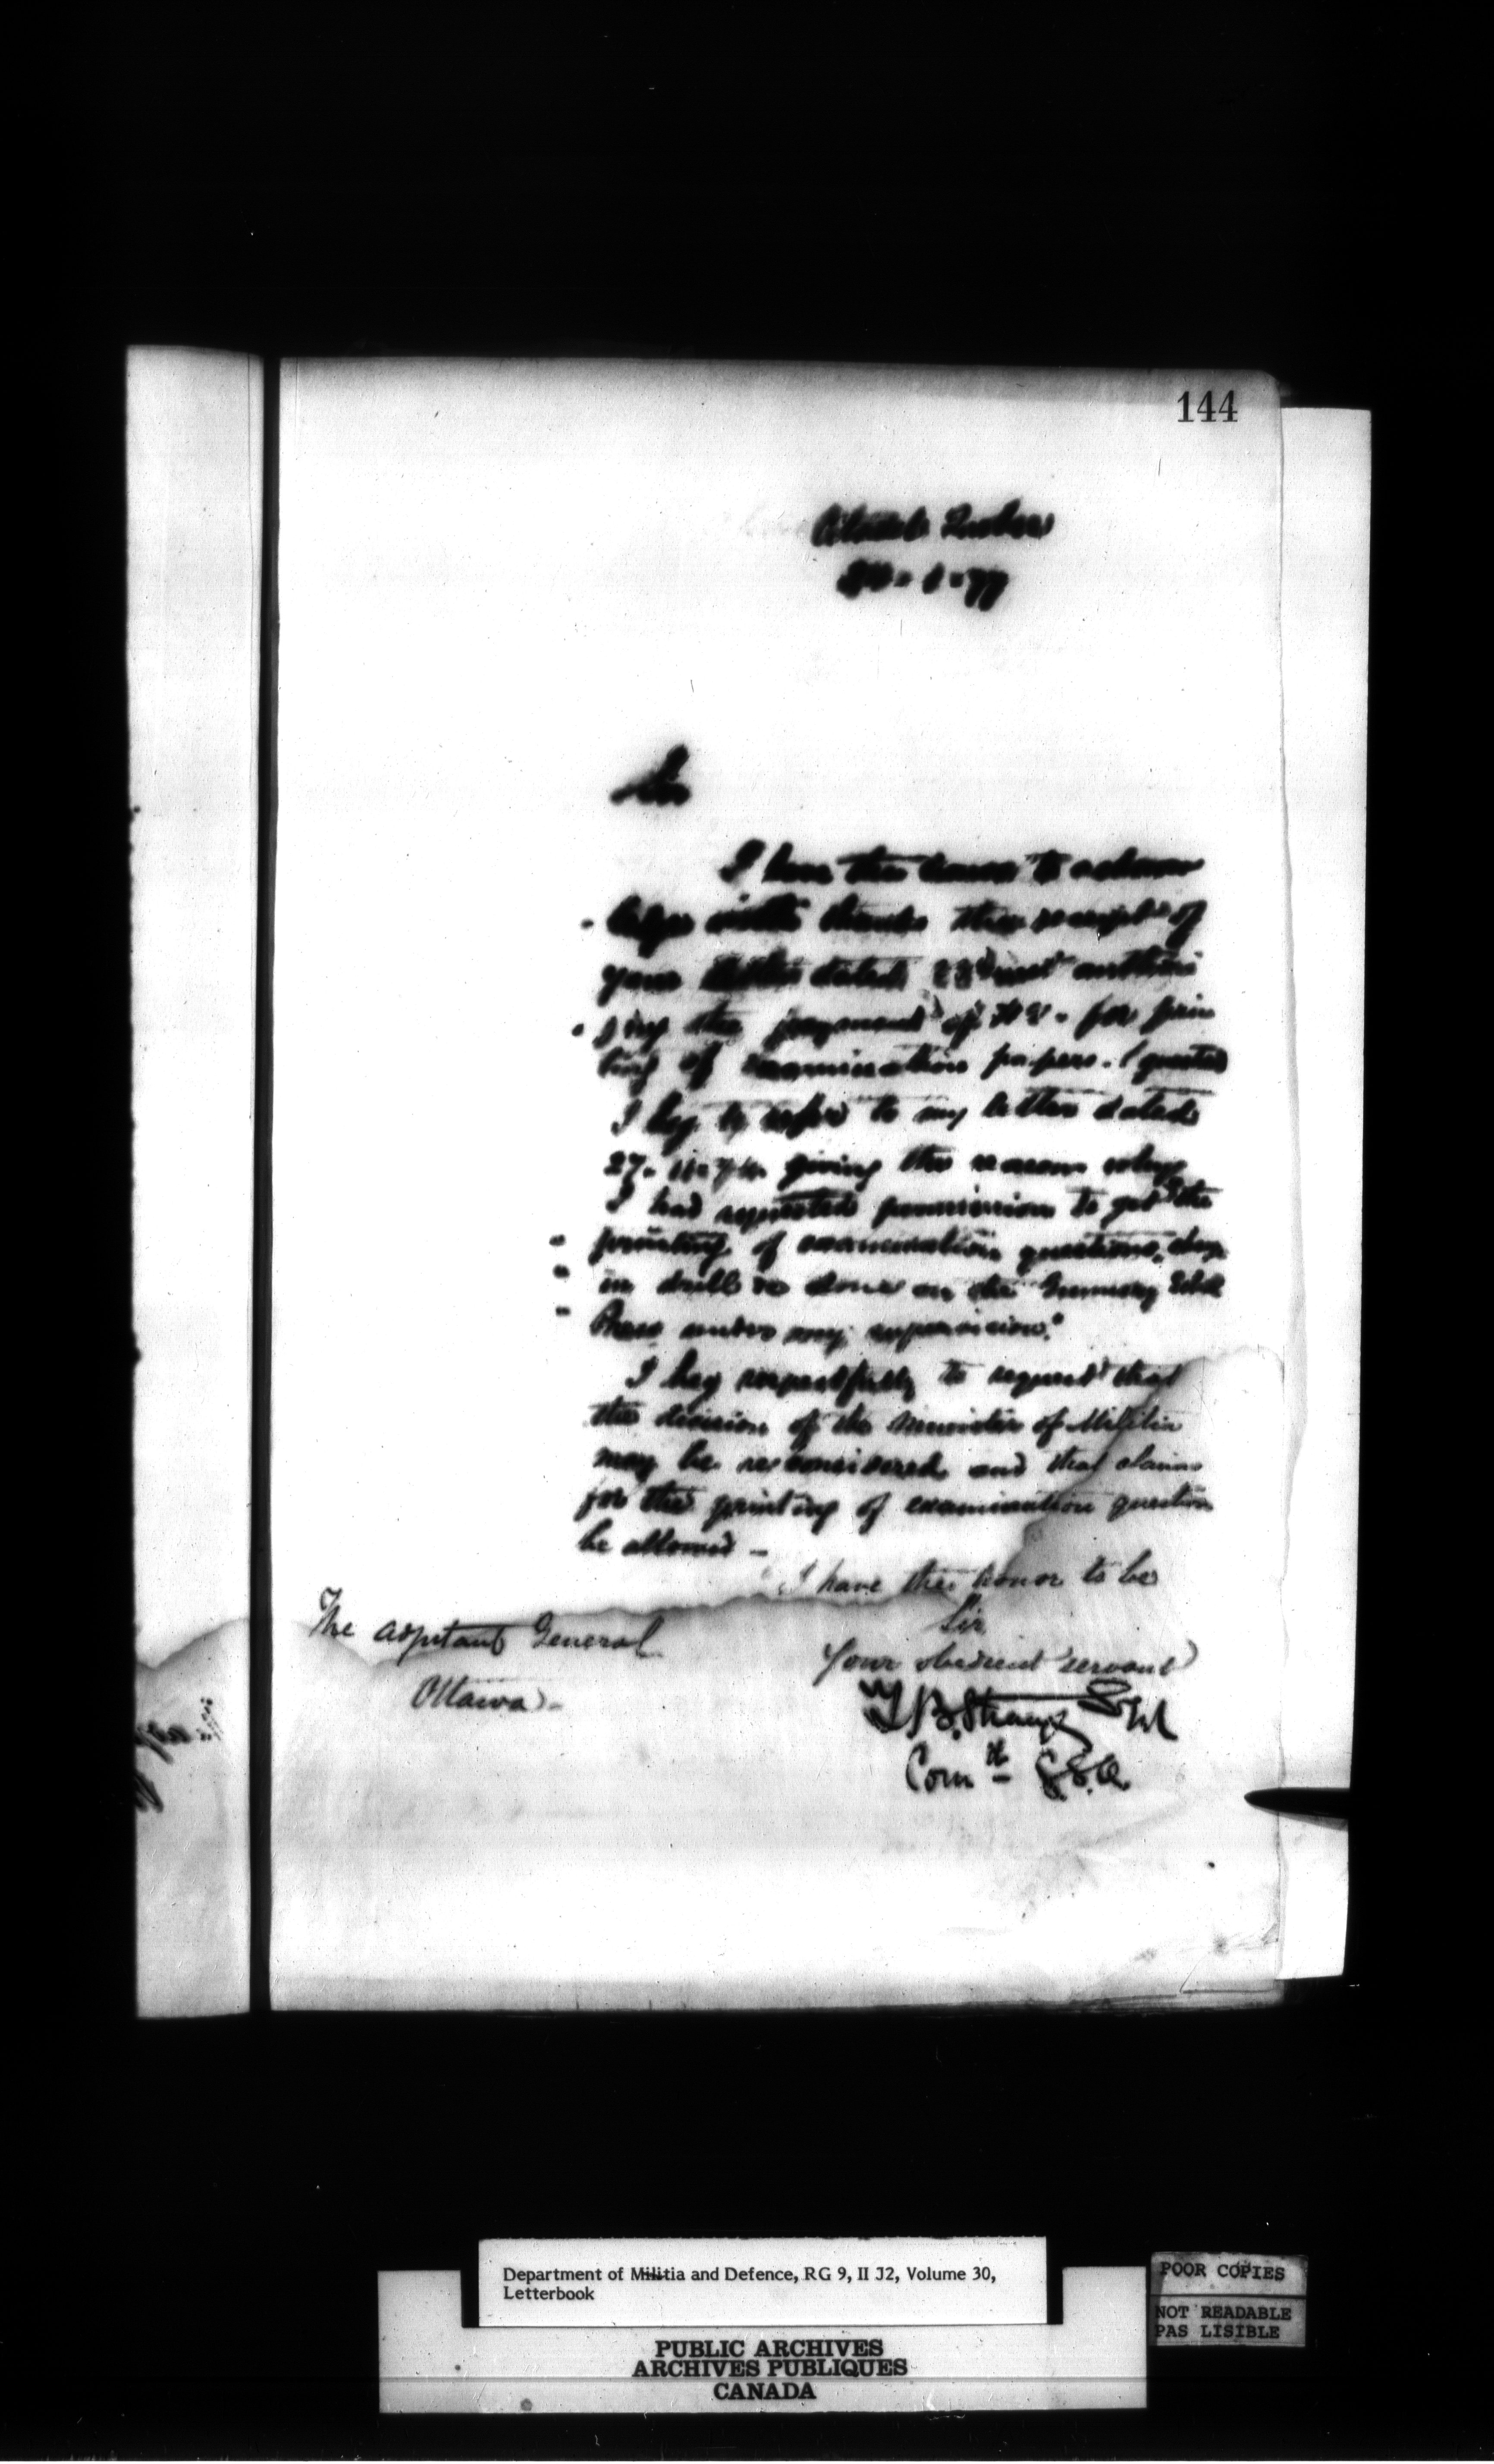 144
Citadel Quebec
1 - 77
Sir
I have the honor to acknow
ledge with thanks the receipt of
your letter dated 23d inst authori
sing the payment of for prin
ting of examination papers.
I beg to refer to my letter dated
27. 11. 76. giving the reason why
I had requested permission to get the
" printing of examination questions,
" in drill &c done on the Gunnery School
" Press under my supervision."
I beg respectfully to request that
the decision of the Minister of Militia
may be reconsidered and that claims
for the printing of examination question
be allowed -
I have the honor to be
Sir
Your obedient servant
T B Strange
Comdt S.G.
The Adjutant General
Ottawa -
Department of Militia and Defence, RG 9, II J2, Volume 30,
Letterbook
POOR COPIES
NOT READABLE
PAS LISIBLE
PUBLIC ARCHIVES
ARCHIVES PUBLIQUES
CANADA